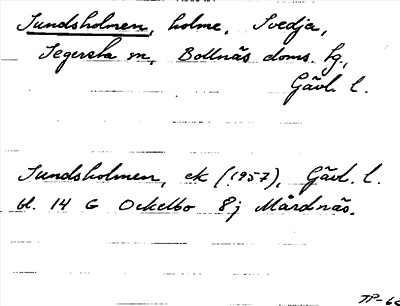 Sundsholmen, holme, Svedja,
Segersta sn, Bollnäs doms. fg.,
Gävl. l.
Sundsholmen, ek (1957), Gävl. l.
bl. 14 G Ockelbo 8j Mårdnäs.